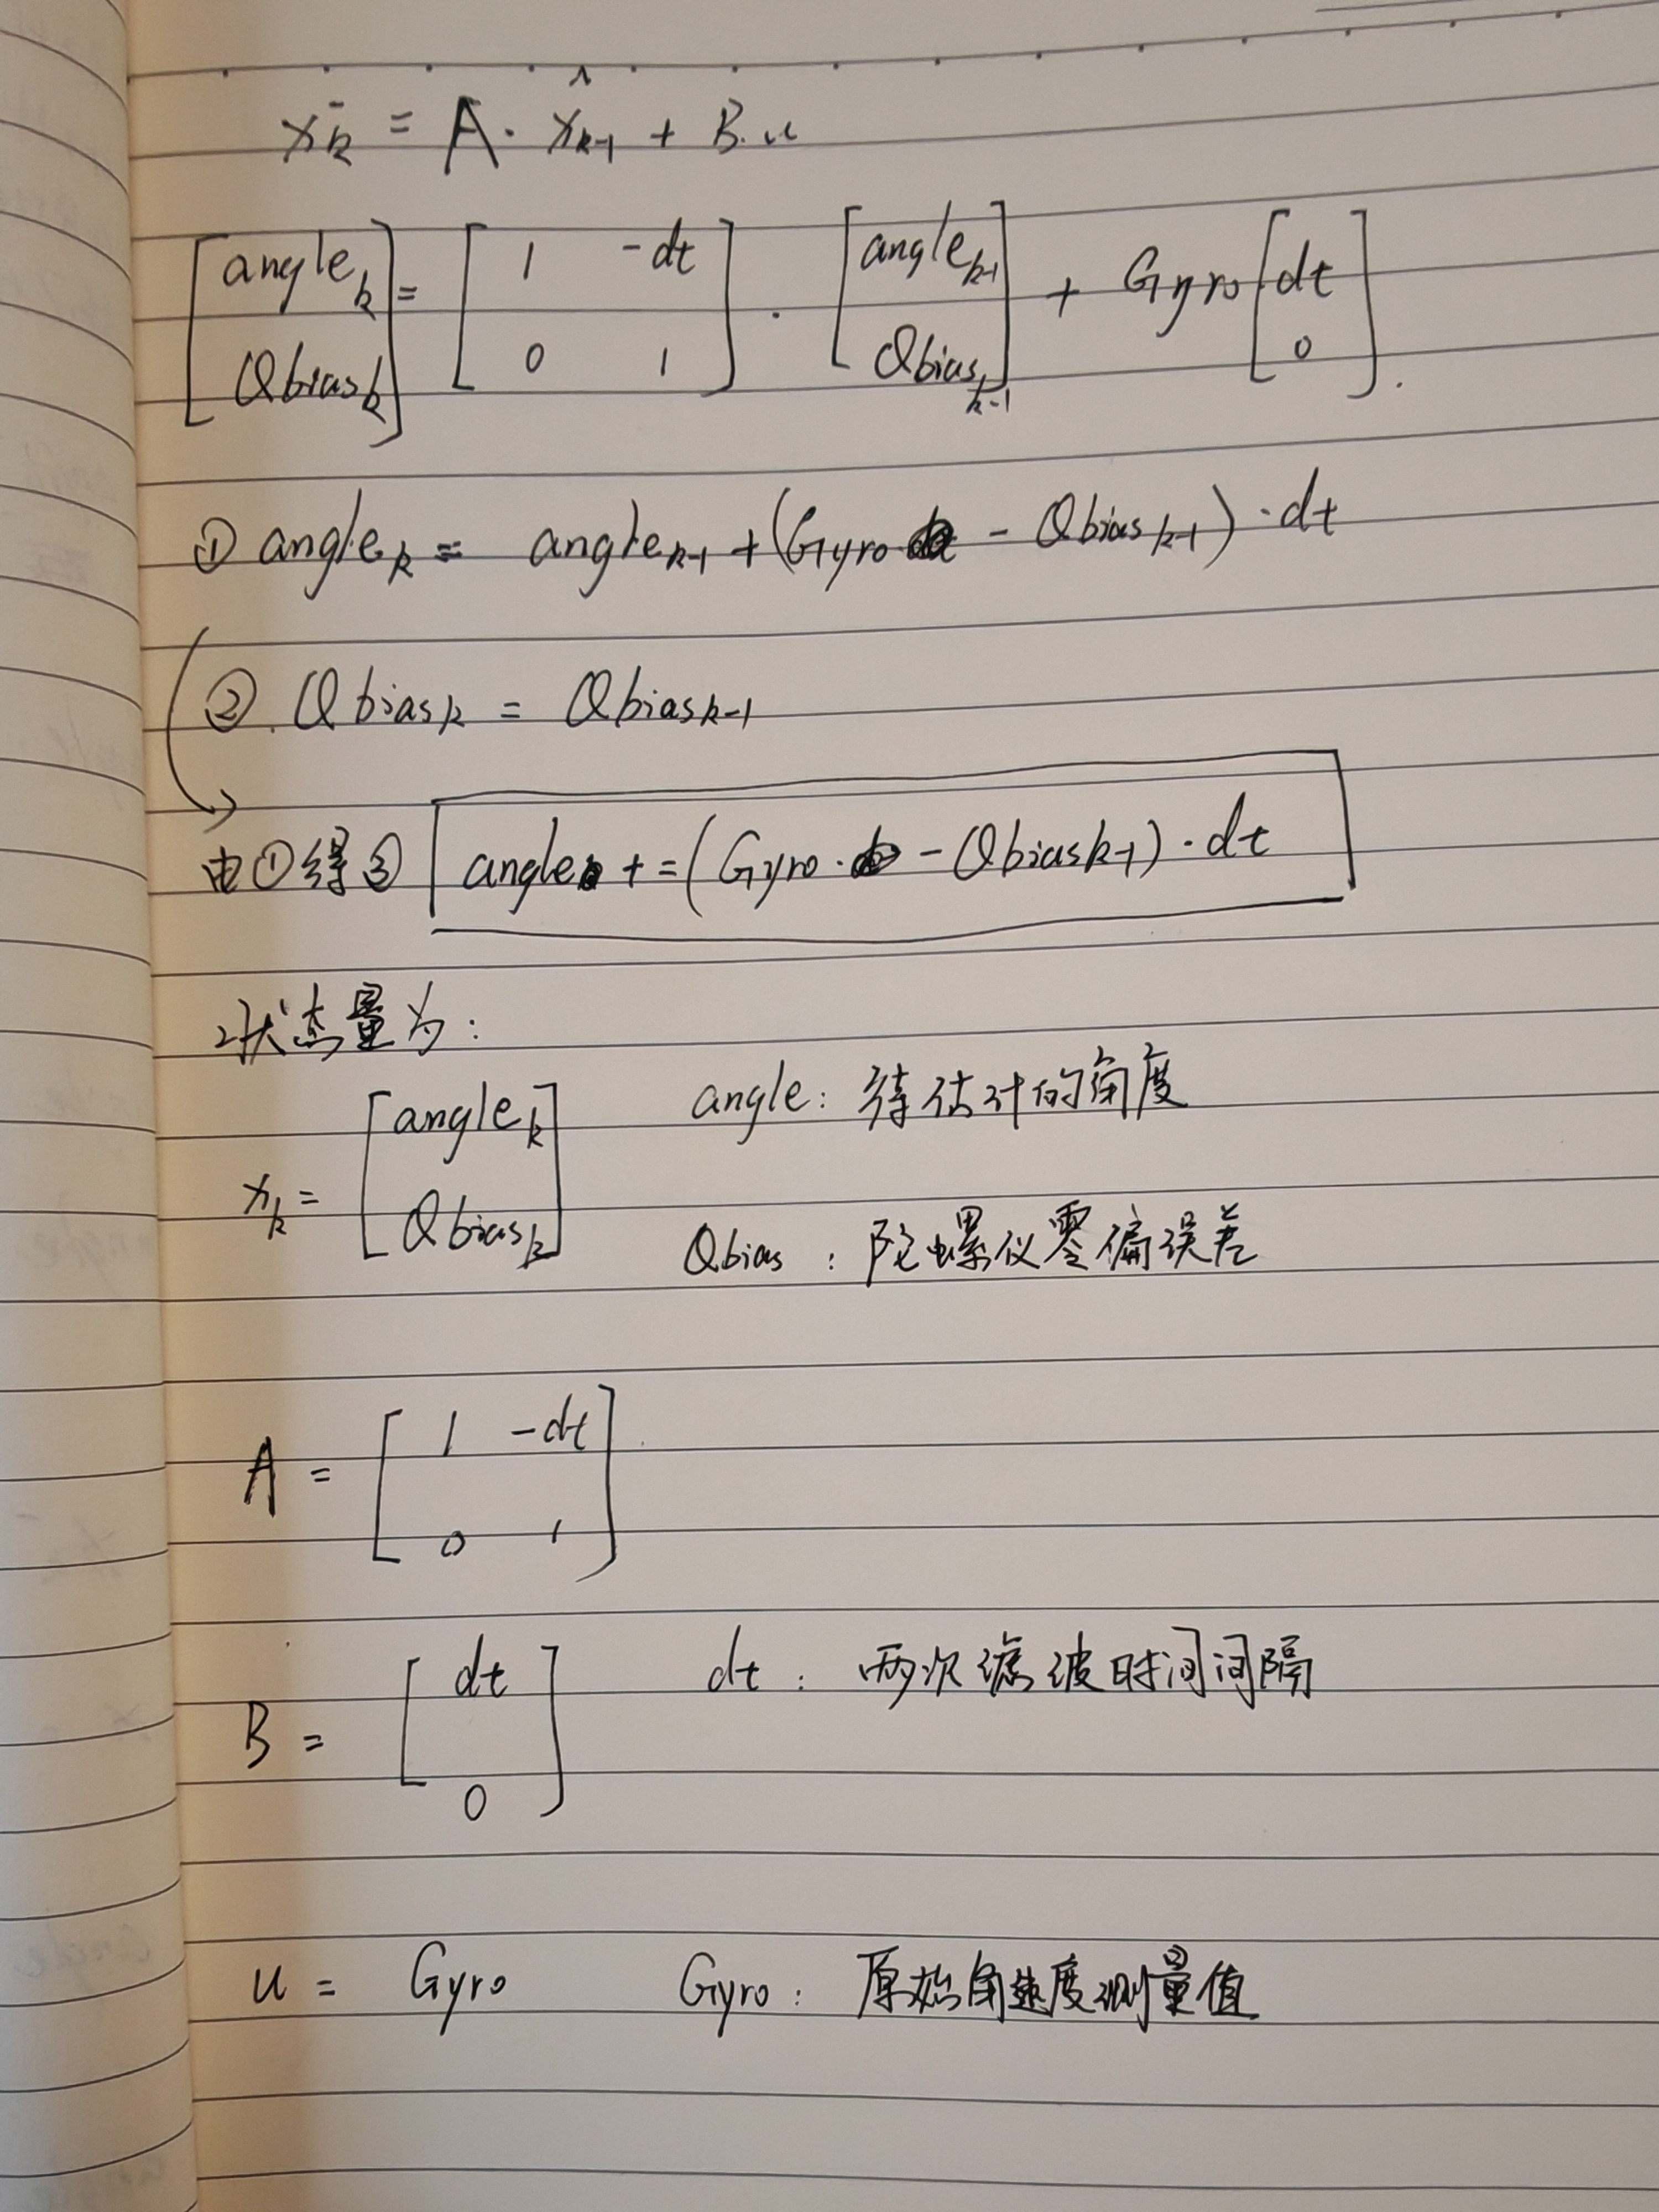 x̄k = A · x̂k-1 + B.u
[anglek Qbiask] = [1 -dt 0 1] · [anglek-1 Qbiask-1] + Gyro [dt 0].
① anglek = anglek-1 + (Gyro - Qbiask-1) · dt
②. Qbiask = Qbiask-1
由①得③ angle += (Gyro · - Qbiask-1) · dt
状态量为:
xk = [anglek Qbiask]
angle: 待估计的角度
Qbias : 陀螺仪零偏误差
A = [1 -dt 0 1]
B = [dt 0]
dt : 两次滤波时间间隔
u = Gyro
Gyro : 原始角速度测量值